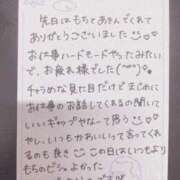 先日はもちとあそんでくれて
ありがとうございました
お仕事ハードモードやったみたい
で、お疲れ様でした(^^)
チャラめな見た目だけどまじめに
お仕事の話してくれるの聞いて
いいギャップやなーって思う
やし、いつもかわいいって言ってくれ
るのも良き この日はいつもより
もちのビジュよかった